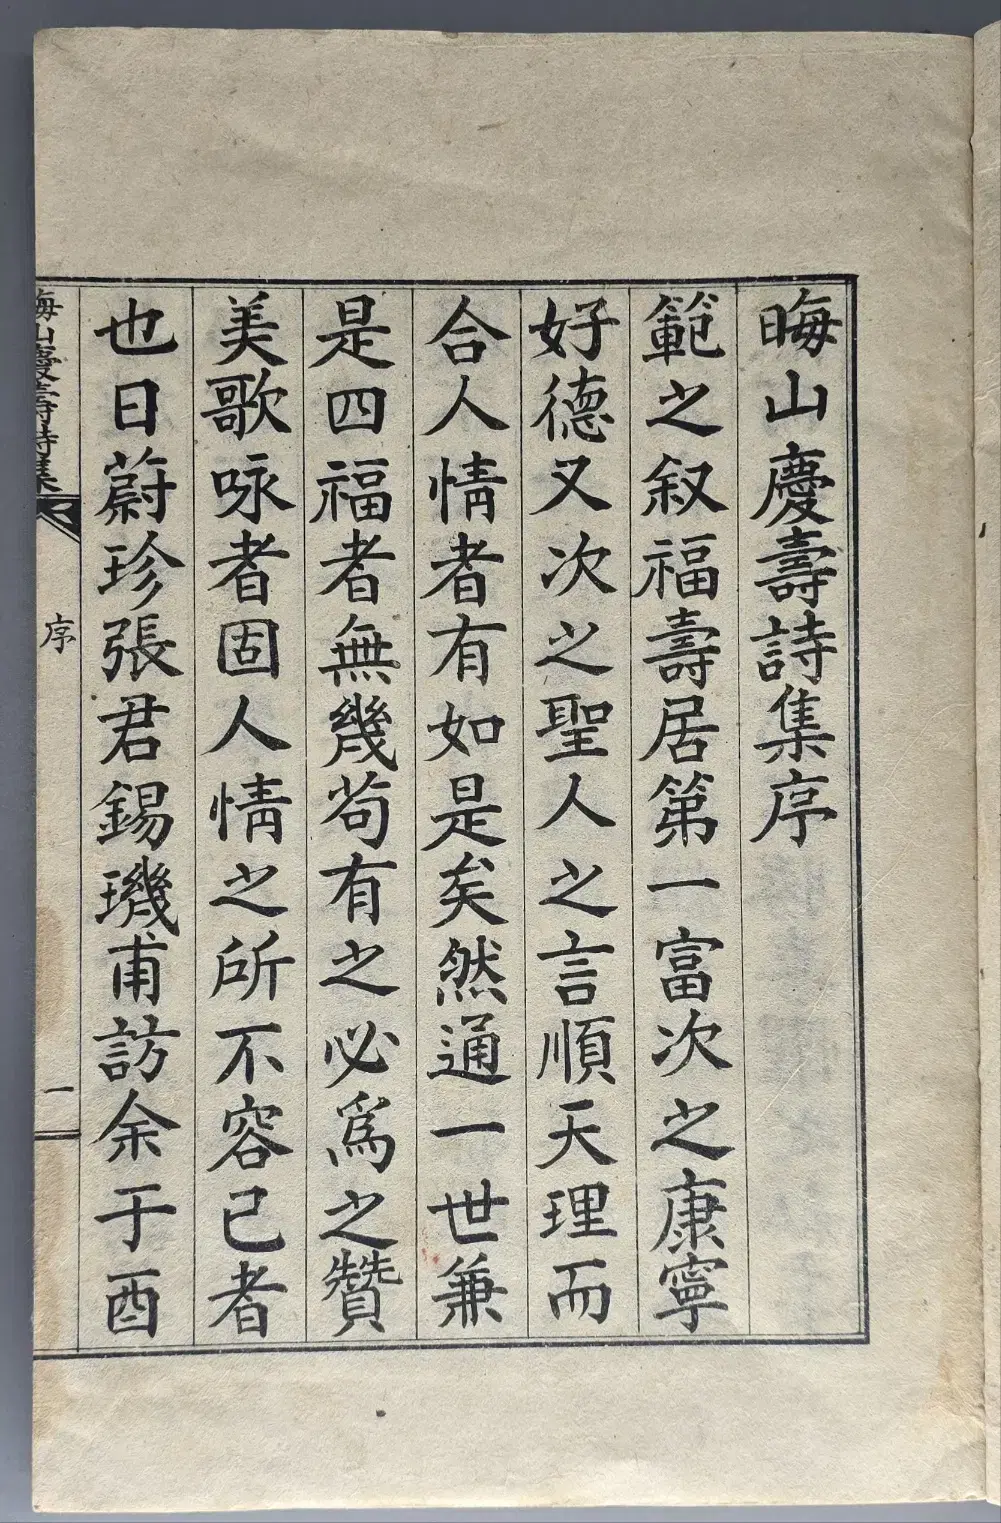 晦山慶壽詩集序
範之叙福壽居第一富次之康寧
好德又次之聖人之言順天理而
合人情者有如是矣然通一世兼
是四福者無幾苟有之必爲之贊
美歌咏者固人情之所不容已者
也日蔚珍張君錫璣甫訪余于酉
晦山慶壽詩集
序
一